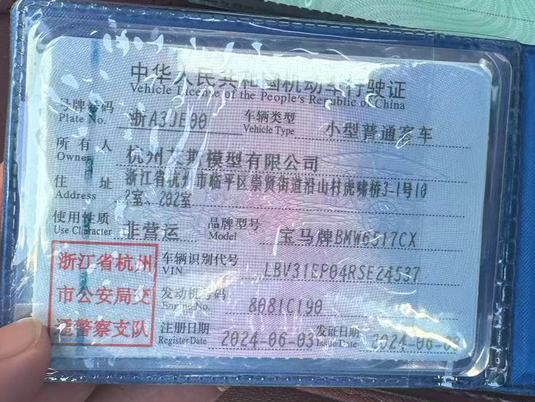 中华人民共和国机动车行驶证
Vehicle License of the People's Republic of China
号牌号码 浙A3JE00 车辆类型 小型普通客车
Plate No. Vehicle Type
所有人 杭州艾斯模型有限公司
Owner
住 址 浙江省杭州市临平区崇贤街道沿山村虎啸桥3-1号10
Address 2室、202室
使用性质 非营运 品牌型号 宝马牌BMW6517CX
Use Character Model
浙江省杭州 车辆识别代号 LBV31EP04RSE24537
VIN
市公安局交 发动机号码 8081C190
Engine No.
通警察支队 注册日期 2024-06-03 发证日期 2024-06-
Register Date Issue Date